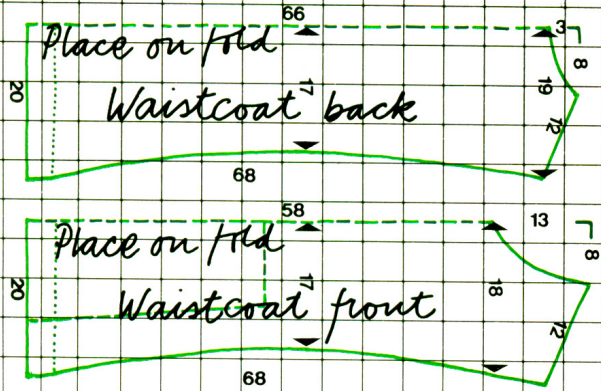 66
3
Place on fold
8
20
17
19
Waistcoat back
12
68
58
13
Place on fold
8
20
17
18
Waistcoat front
12
68